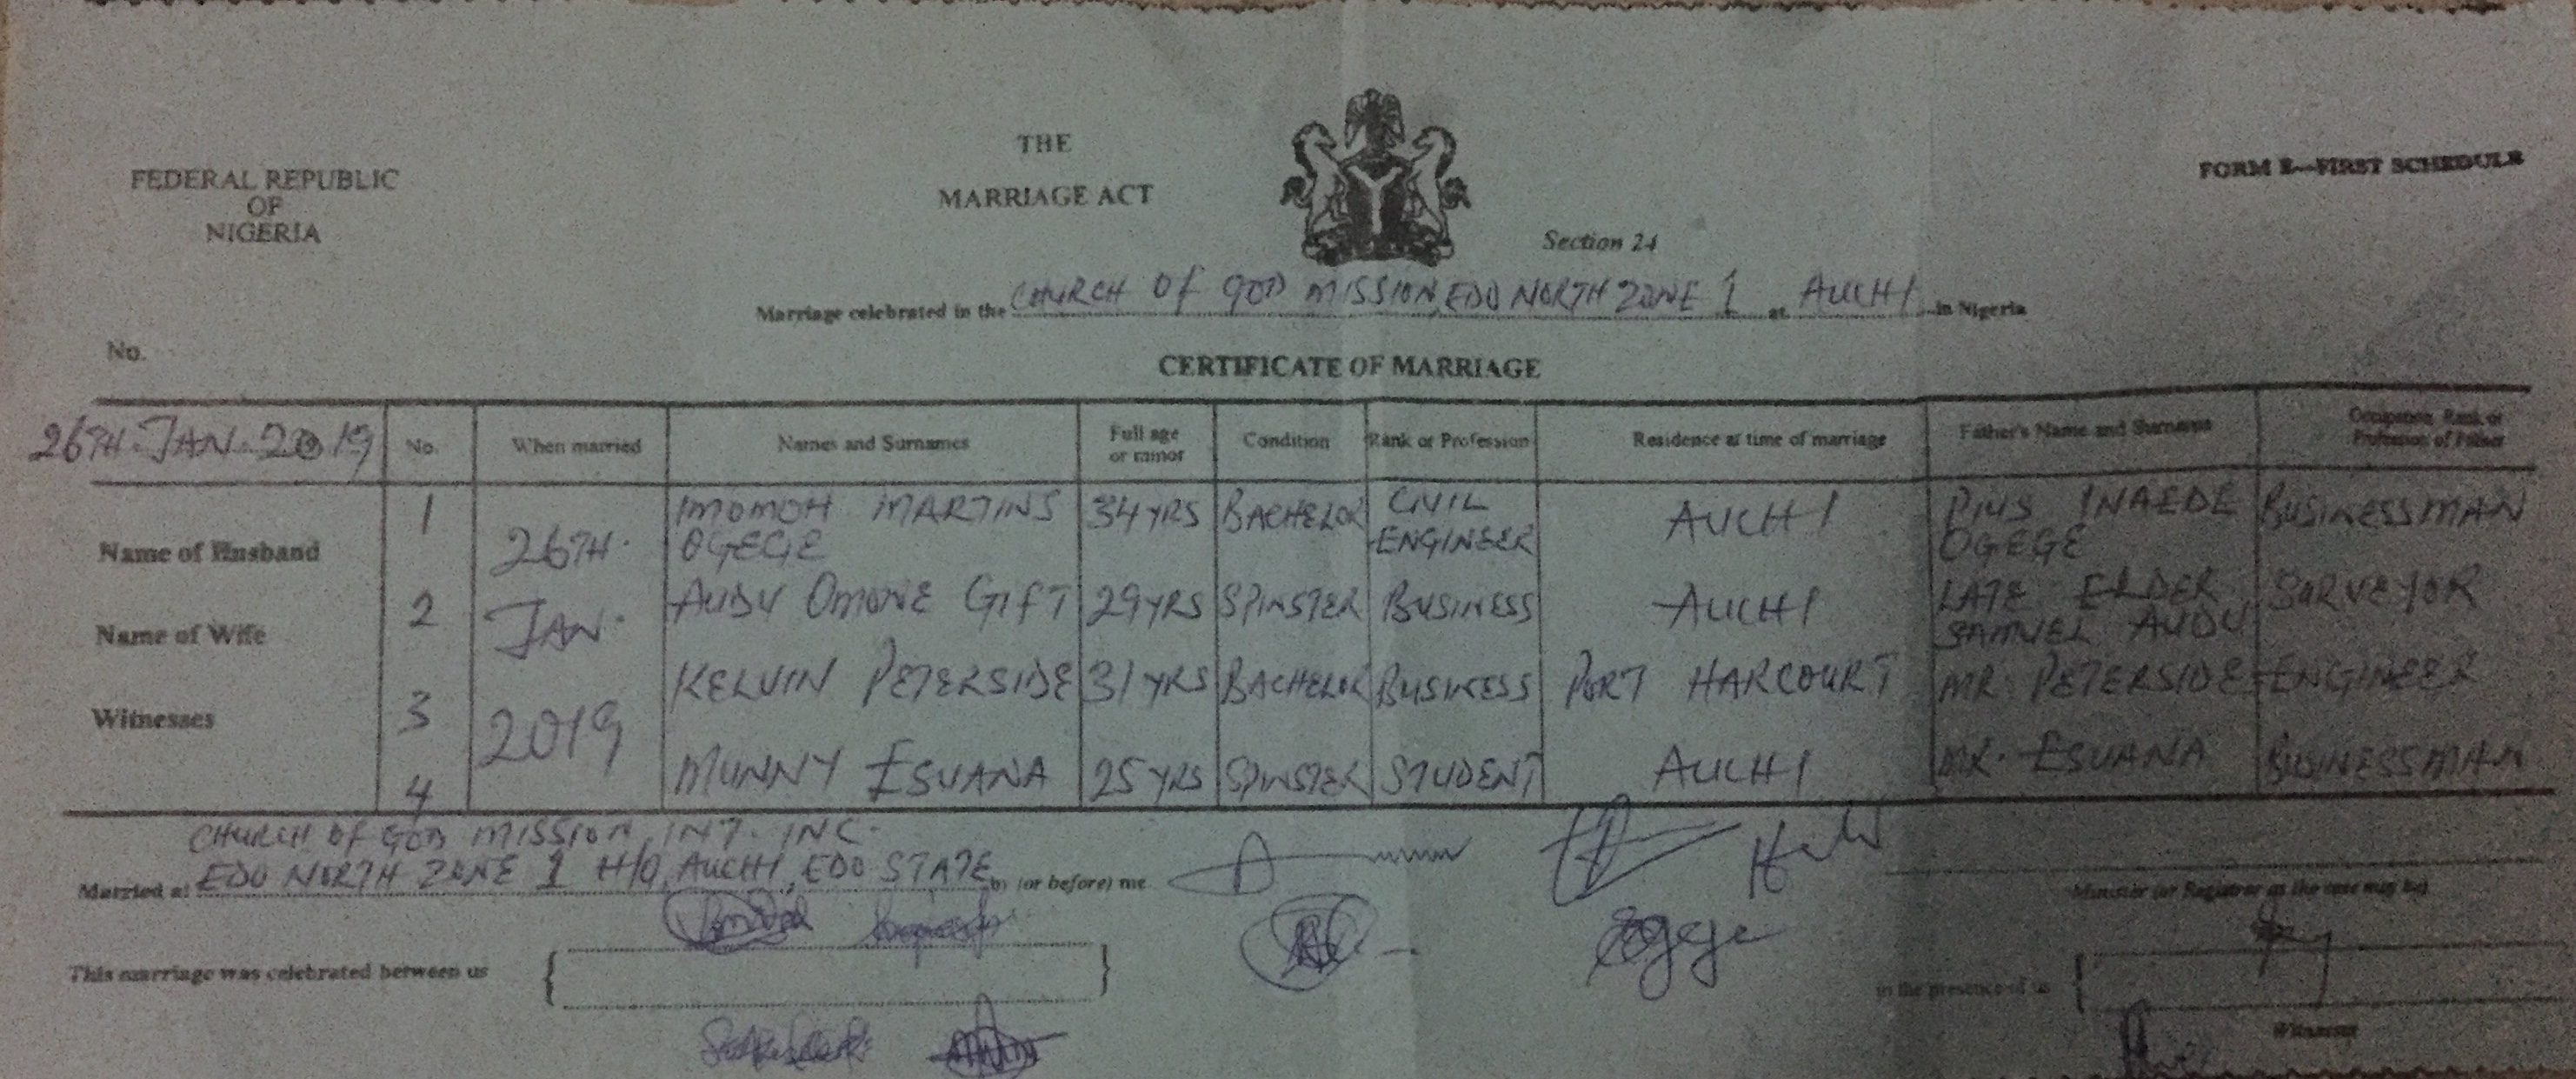 FEDERAL REPUBLIC
OF
NIGERIA
THE
MARRIAGE ACT
Section 24
FORM E—FIRST SCHEDULE
Marriage celebrated in the CHURCH OF GOD MISSION, EDO NORTH ZONE 1 at AUCHI in Nigeria
No.
CERTIFICATE OF MARRIAGE
26TH. JAN. 2019 No. When married Names and Surnames Full age or minor Condition Rank or Profession Residence at time of marriage Father's Name and Surname Occupation, Rank or Profession of Father
Name of Husband 1 IMOMOH MARTINS OGEGE 34 YRS BACHELOR CIVIL ENGINEER AUCHI PIUS INAEDE OGEGE BUSINESSMAN
26TH.
Name of Wife 2 AUDU OMONE GIFT 29 YRS SPINSTER BUSINESS AUCHI LATE ELDER SAMUEL AUDU SURVEYOR
JAN.
Witnesses 3 KELVIN PETERSIDE 31 YRS BACHELOR BUSINESS PORT HARCOURT MR. PETERSIDE ENGINEER
2019
4 MUNNY ESUANA 25 YRS SPINSTER STUDENT AUCHI MR. ESUANA BUSINESSMAN
CHURCH OF GOD MISSION INT. INC.
Married at EDO NORTH ZONE 1 H/Q, AUCHI, EDO STATE by (or before) me
Minister (or Registrar as the case may be)
This marriage was celebrated between us
Ogege
in the presence of us
Witnesses